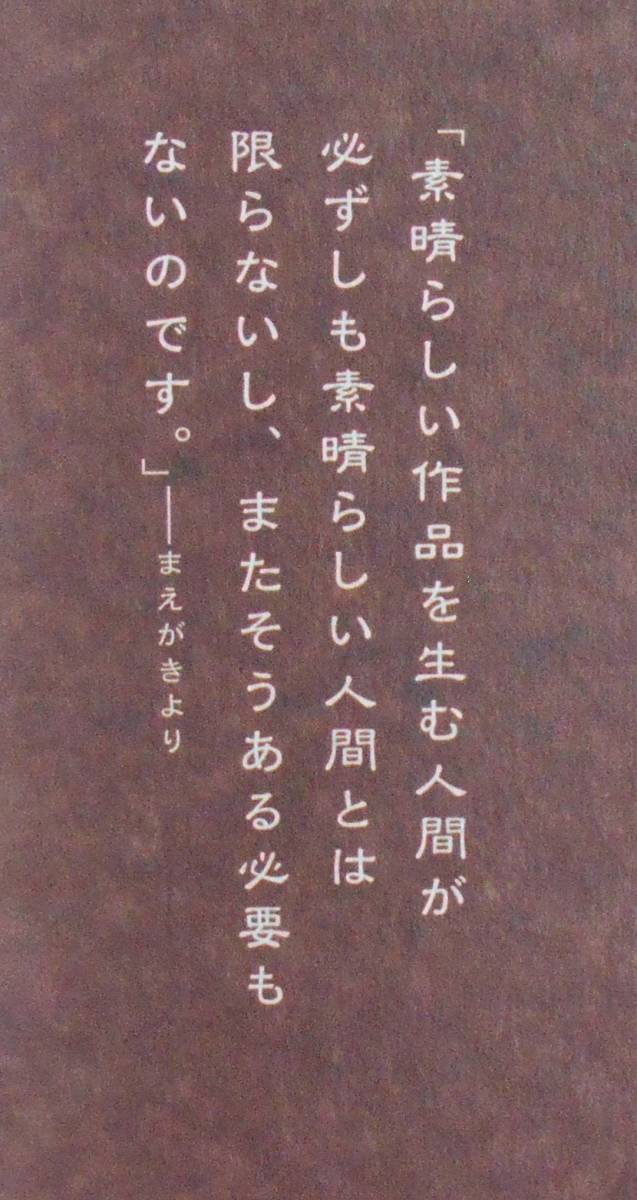 「素晴らしい作品を生む人間が
必ずしも素晴らしい人間とは
限らないし、またそうある必要も
ないのです。」──まえがきより